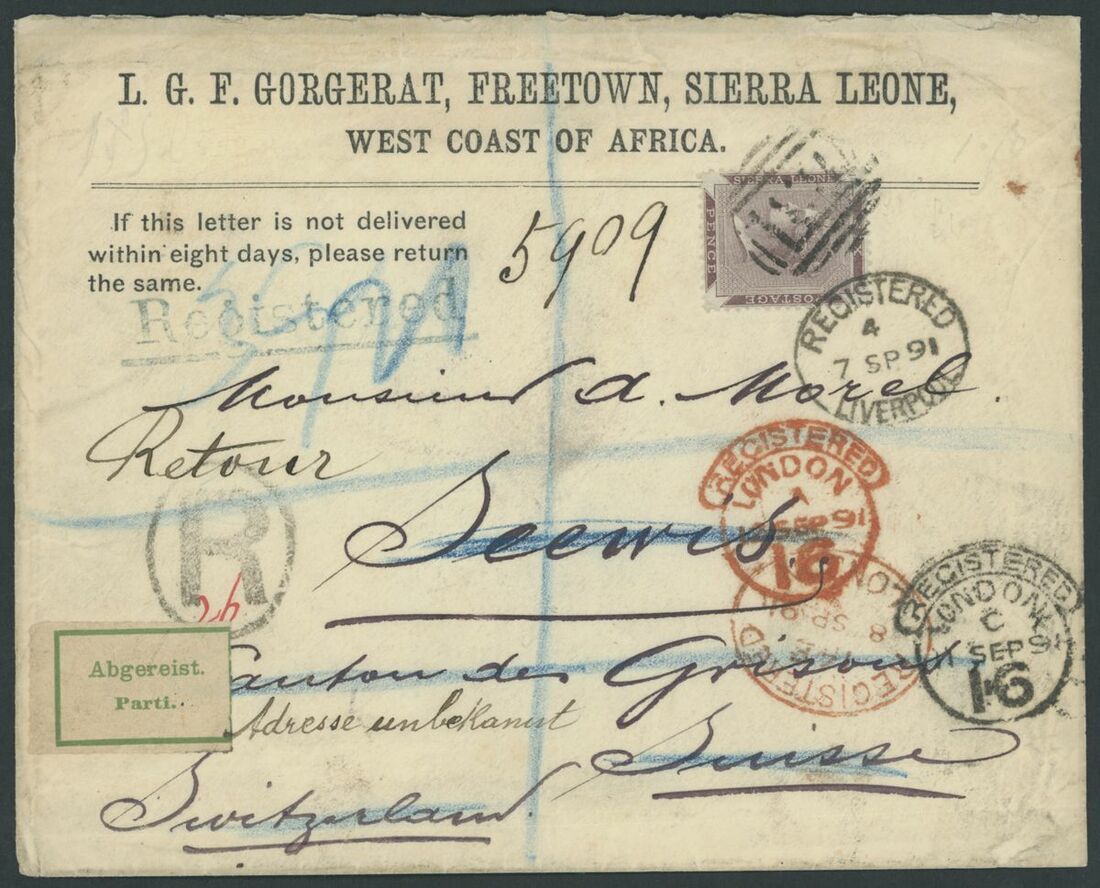 L. G. F. GORGERAT, FREETOWN, SIERRA LEONE,
WEST COAST OF AFRICA.
If this letter is not delivered
within eight days, please return
the same.
5909
SIERRA LEONE
PENCE
POSTAGE
Registered
REGISTERED
4
7 SP 91
LIVERPOOL
Monsieur A. Morel.
Retour
REGISTERED
LONDON
SEP 91
16
Seewis,
R
REGISTERED
8 SP 91
REGISTERED
LONDON
C
SEP 91
16
Abgereist.
Parti.
Canton des Grisons
Adresse unbekannt
Suisse
Switzerland.